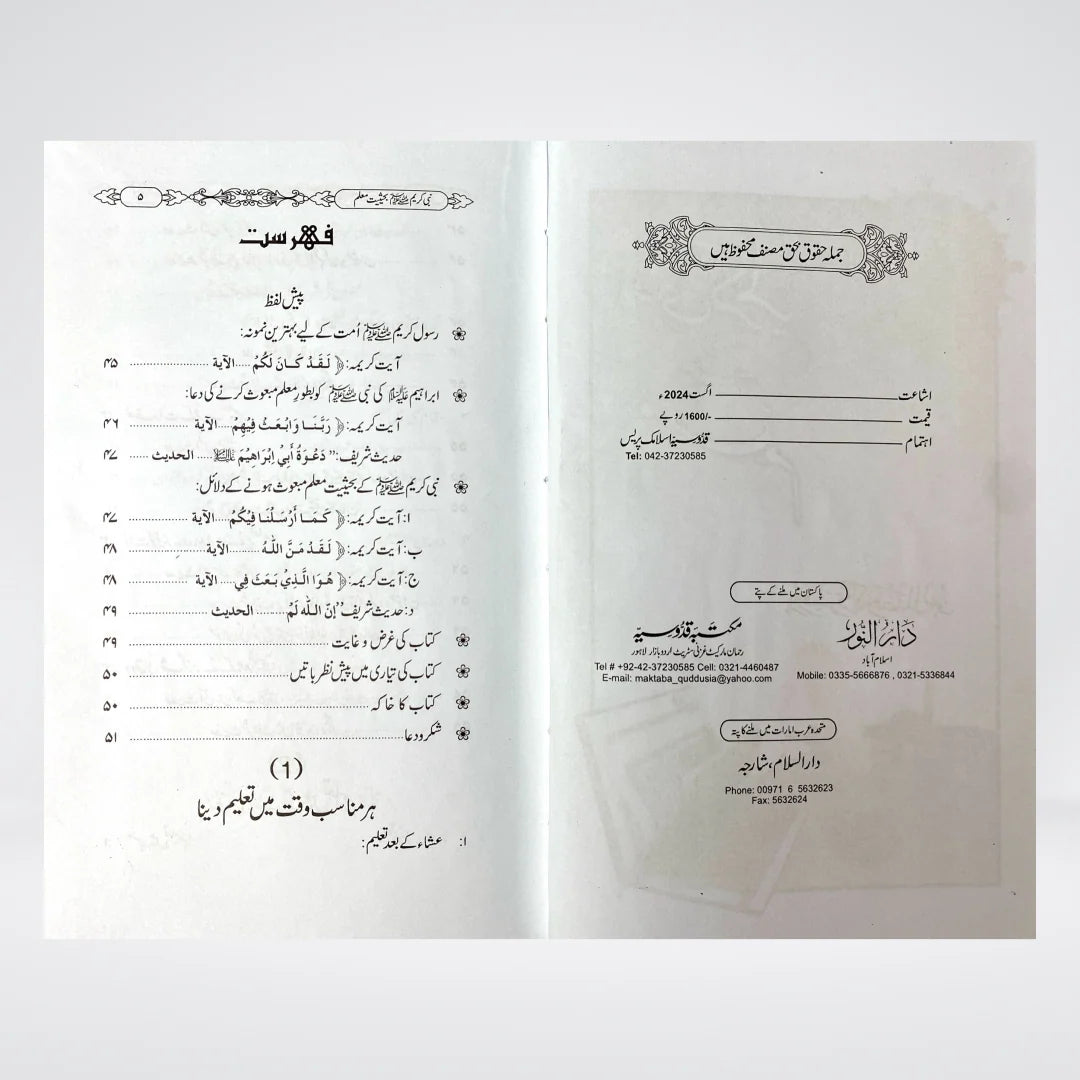 جملہ حقوق بحق مصنف محفوظ ہیں
اشاعت ــــــــــ اگست 2024ء
قیمت ــــــــــ 1600/- روپے
اہتمام ــــــــــ قدوسیہ اسلامک پریس
Tel: 042-37230585
پاکستان میں ملنے کے پتے
دَارُ النُّور
اسلام آباد
Mobile: 0335-5666876 , 0321-5336844
مکتبہ قدّوسیہ
رحمان مارکیٹ غزنی سٹریٹ اردو بازار لاہور
Tel # +92-42-37230585 Cell: 0321-4460487
E-mail: maktaba_quddusia@yahoo.com
متحدہ عرب امارات میں ملنے کا پتہ
دارالسلام، شارجہ
Phone: 00971 6 5632623
Fax: 5632624
نبی کریم ﷺ بحیثیت معلم ۵
فہرست
پیش لفظ
رسول کریم ﷺ اُمت کے لیے بہترین نمونہ:
آیت کریمہ: ﴿ لَقَدْ كَانَ لَكُمْ ..... الآیة .................. ۴۵
ابراہیم علیہ السلام کی نبی ﷺ کو بطورِ معلم مبعوث کرنے کی دعا:
آیت کریمہ: ﴿ رَبَّنَا وَابْعَثْ فِيهِمْ .... الآیة .................. ۴۶
حدیث شریف: ”دَعْوَةُ أَبِي إِبْرَاهِيمَ علیہ السلام ..... الحدیث ...... ۴۷
نبی کریم ﷺ کے بحیثیت معلم مبعوث ہونے کے دلائل:
ا: آیت کریمہ: ﴿ كَمَا أَرْسَلْنَا فِيكُمْ .... الآیة .................. ۴۷
ب: آیت کریمہ: ﴿ لَقَدْ مَنَّ اللهُ ......... الآیة .................. ۴۸
ج: آیت کریمہ: ﴿ هُوَا الَّذِيْ بَعَثَ فِي .... الآیة .................. ۴۸
د: حدیث شریف ”إنّ الله لَمْ ......... الحدیث .................. ۴۹
کتاب کی غرض و غایت .................. ۴۹
کتاب کی تیاری میں پیش نظر باتیں .................. ۵۰
کتاب کا خاکہ .................. ۵۰
شکر و دعا .................. ۵۱
(1)
ہر مناسب وقت میں تعلیم دینا
ا: عشاء کے بعد تعلیم: